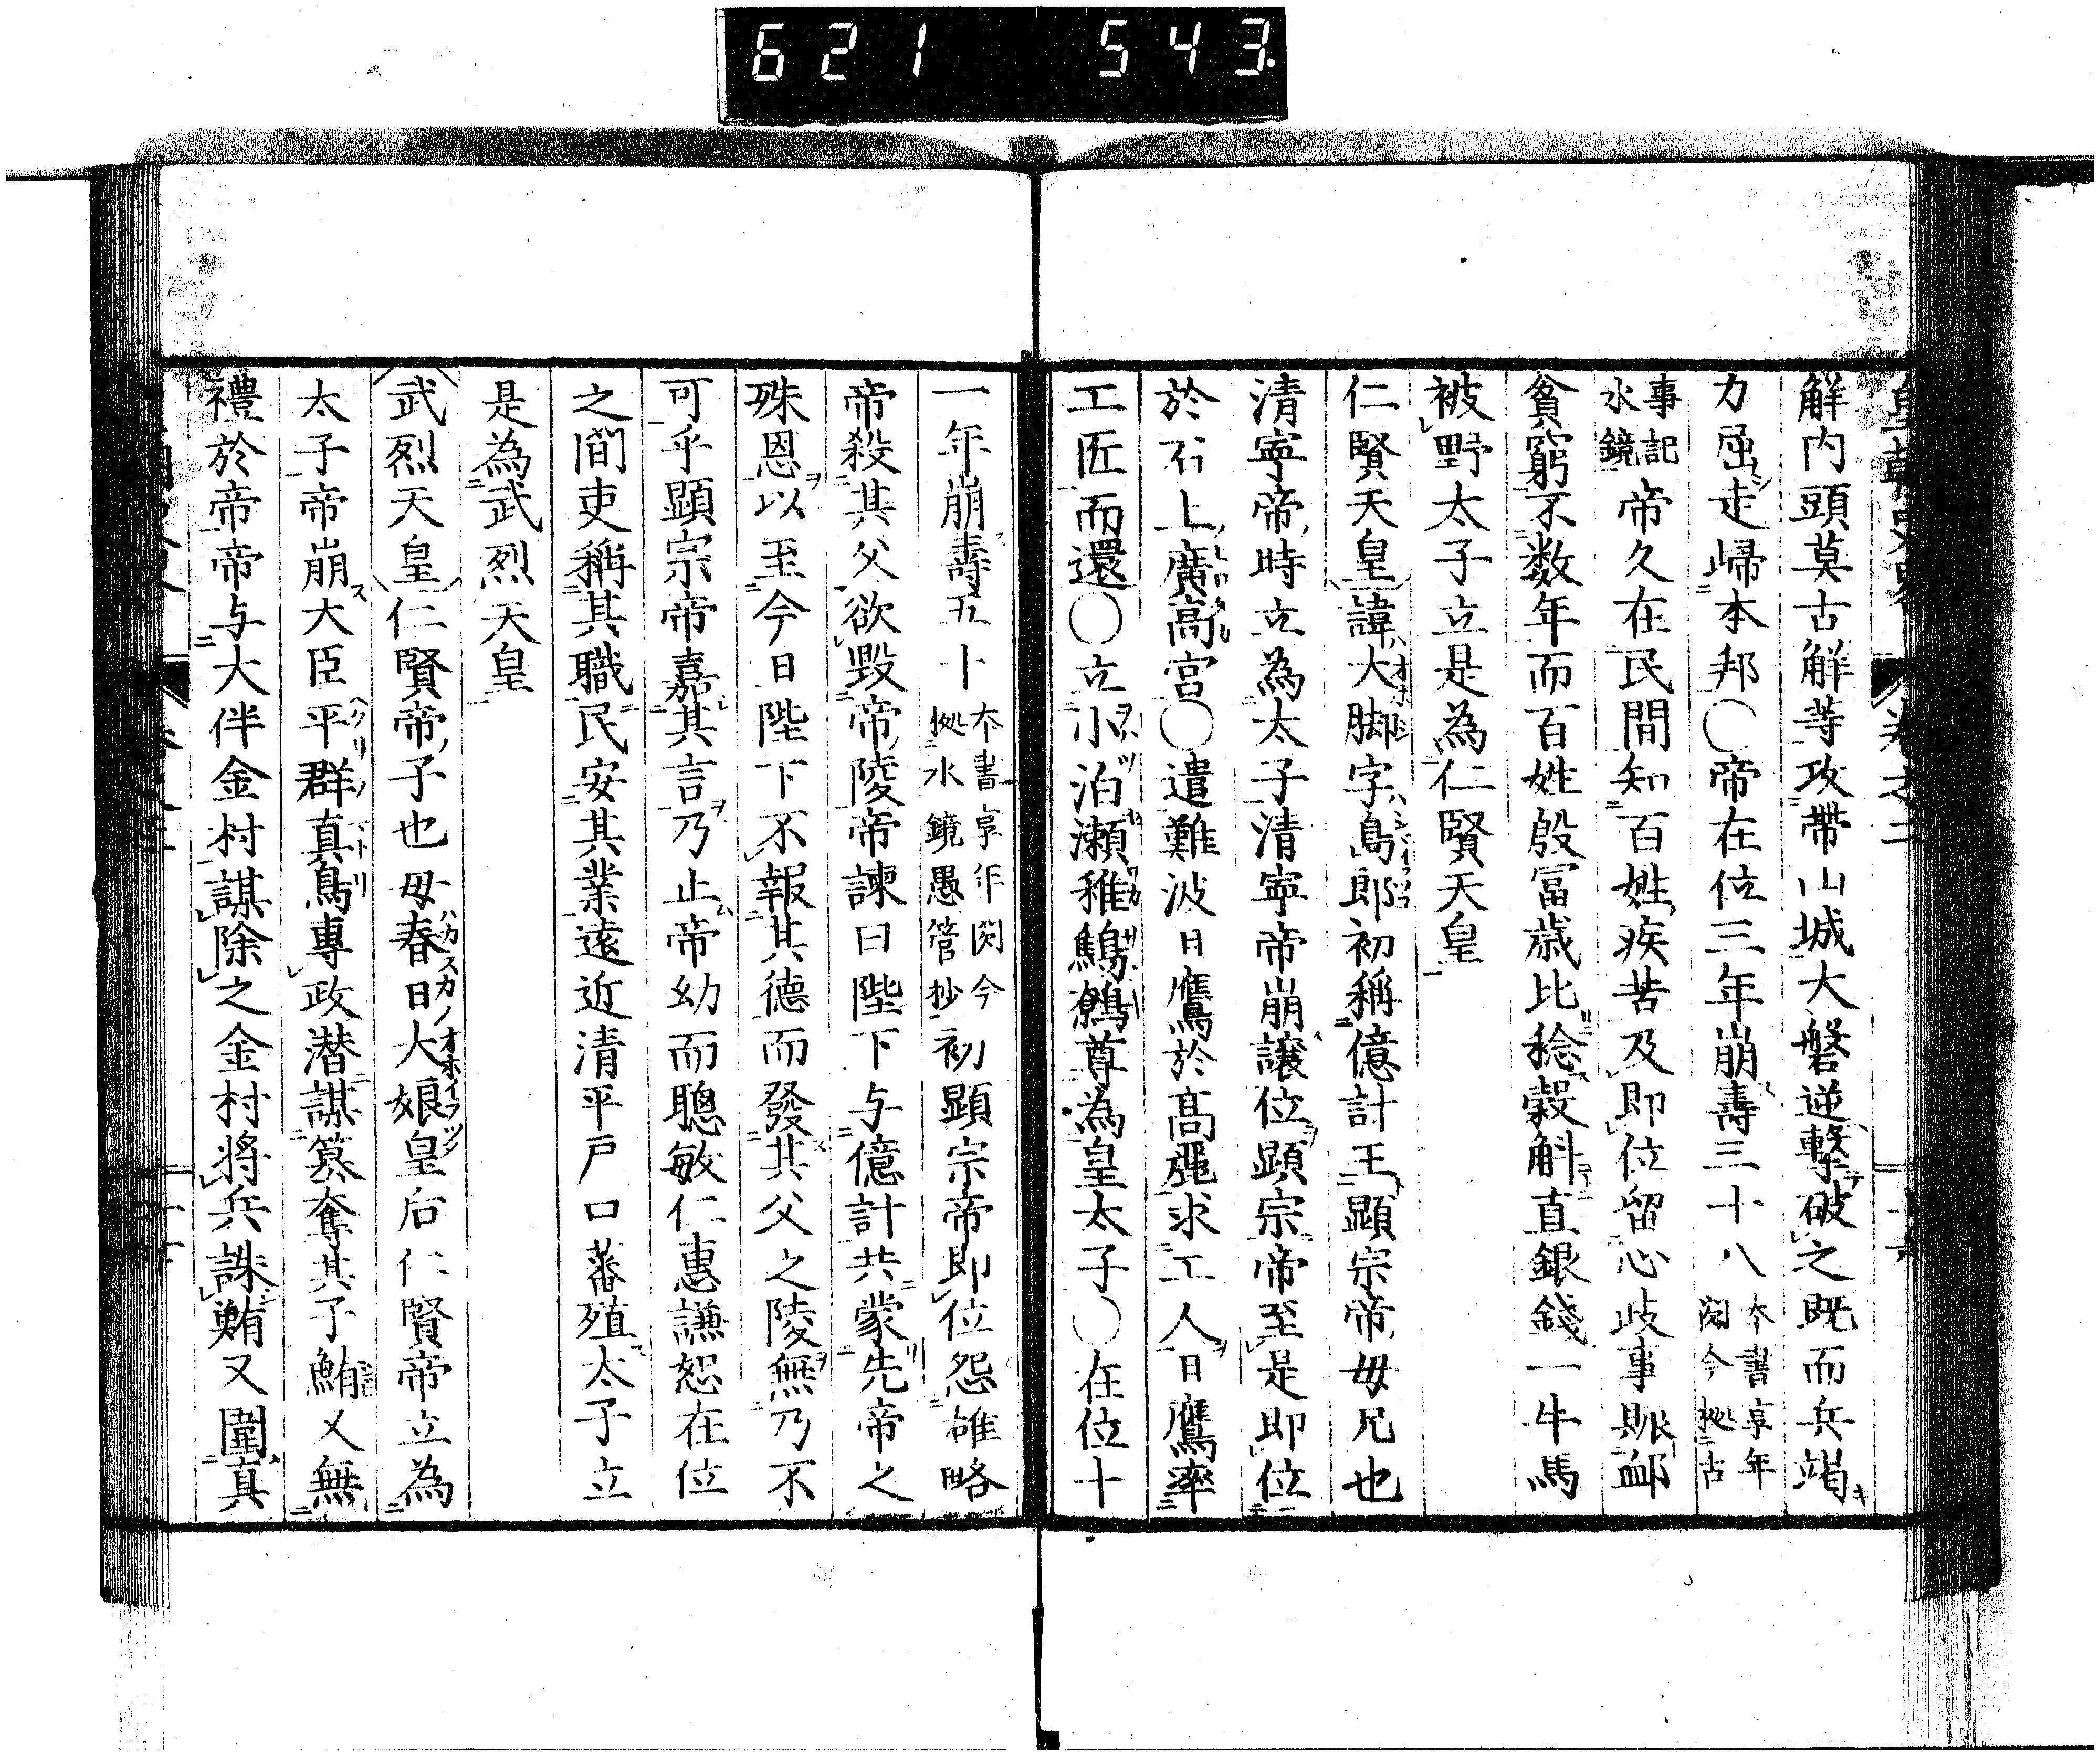 621 543
解内頭莫古解等攻帶山城大磐逆擊破之既而兵竭
力屈走歸本邦○帝在位三年崩壽三十八本書享年闕今拠古
事記水鏡帝久在民間知百姓疾苦及即位留心政事賑邺
貧窮不数年而百姓殷冨歳比稔穀斛直銀錢一牛馬
被野太子立是為仁賢天皇
仁賢天皇諱大脚字島郎初稱億計王顯宗帝母兄也
清寧帝時立為太子清寧帝崩譲位顕宗帝至是即位
於石上廣高宮○遣難波日鷹於高麗求工人日鷹率
工匠而還○立小泊瀬稚鷦鷯尊為皇太子○在位十
一年崩壽五十本書享年闕今拠水鏡愚管抄初顕宗帝即位怨雄略
帝殺其父欲毀帝陵帝諫曰陛下与億計共蒙先帝之
殊恩以至今日陛下不報其德而發其父之陵無乃不
可乎顕宗帝嘉其言乃止帝幼而聰敏仁惠謙恕在位
之間吏稱其職民安其業遠近清平戸口蕃殖太子立
是為武烈天皇
武烈天皇仁賢帝子也母春日大娘皇后仁賢帝立為
太子帝崩大臣平群真鳥專政潜謀簒奪其子鮪又無
禮於帝帝与大伴金村謀除之金村將兵誅鮪又圍真